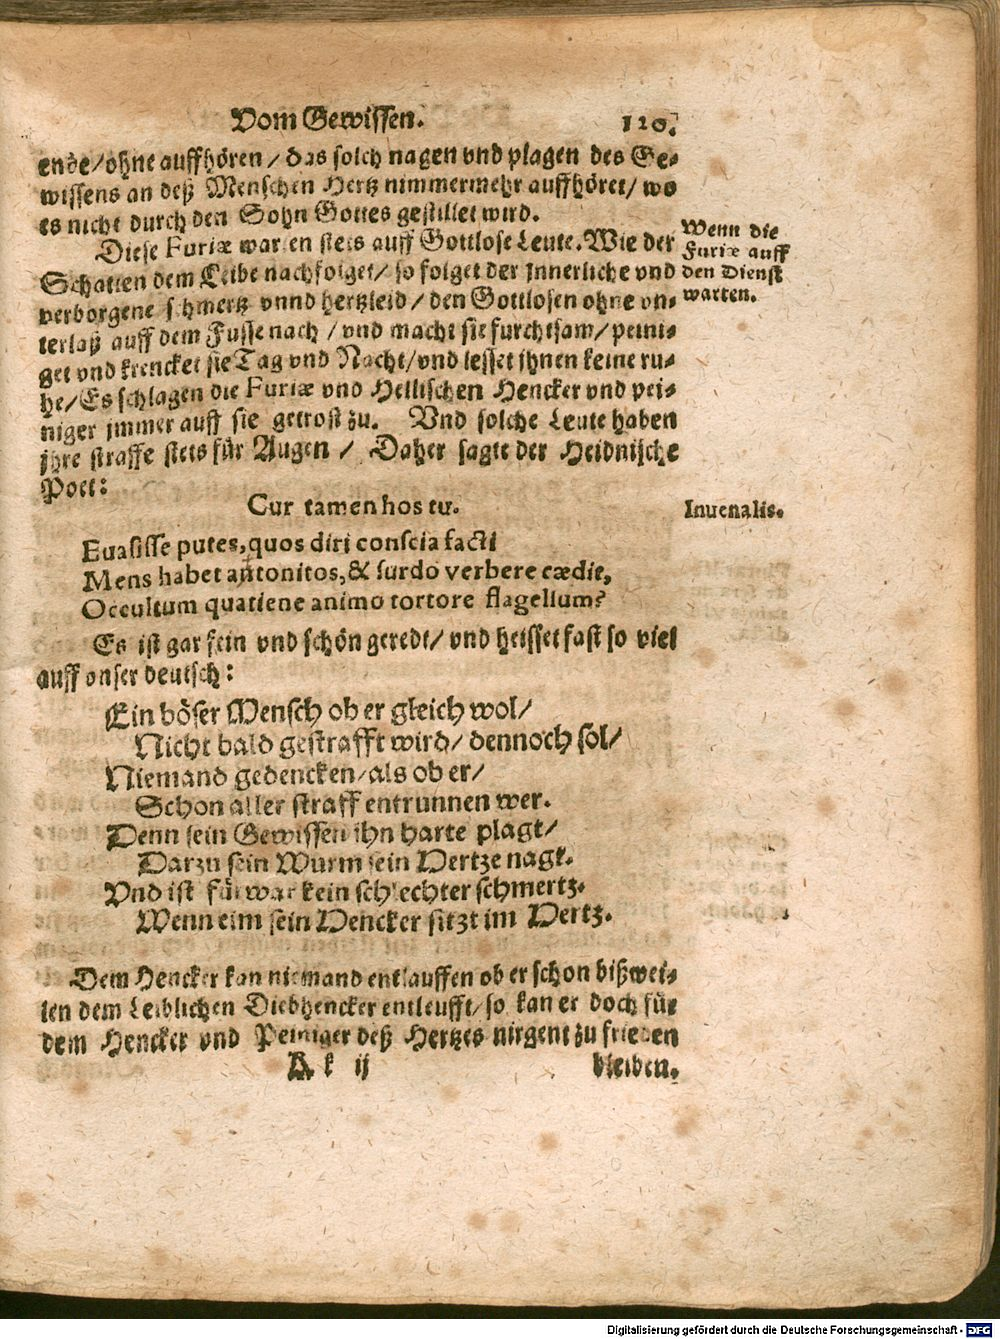 Vom Gewissen. 120.
ende/ohne auffhören/das solch nagen vnd plagen des Ge-
wissens an deß Menschen Hertz nimmermehr auffhöret/wo
es nicht durch den Sohn Gottes gestillet wird.
Diese Furiæ warten stets auff Gottlose Leute. Wie der
Schatten dem Leibe nachfolget/so folget der Innerliche vnd
verborgene schmertz vnnd hertzleid/den Gottlosen ohne vn-
terlaß auff dem Fusse nach/vnd macht sie furchtsam/peini-
get vnd krencket sie Tag vnd Nacht/vnd lesset ihnen keine ru-
he/Es schlagen die Furiæ vnd Hellischen Hencker vnd pei-
niger jmmer auff sie getrost zu. Vnd solche Leute haben
jhre straffe stets für Augen/ Daher sagte der Heidnische
Poet:
Wenn die
Furiæ auff
den Dienst
warten.
Cur tamen hos tu.
Iuuenalis.
Euasisse putes, quos diri conscia facti
Mens habet attonitos, & surdo verbere cædit,
Occultum quatiente animo tortore flagellum?
Es ist gar fein vnd schön geredt/vnd heisset fast so viel
auff vnser deutsch:
Ein böser Mensch ob er gleich wol/
Nicht bald gestrafft wird/dennoch sol/
Niemand gedencken/als ob er/
Schon aller straff entrunnen wer.
Denn sein Gewissen ihn harte plagt/
Darzu sein Wurm sein Hertze nagt.
Vnd ist fürwar kein schlechter schmertz.
Wenn eim sein Hencker sitzt im Hertz.
Dem Hencker kan niemand entlauffen ob er schon bißwei-
len dem Leiblichen Diebhencker entleufft/so kan er doch für
dem Hencker vnd Peiniger deß Hertzes nirgent zu frieden
K k ij bleiben.
Digitalisierung gefördert durch die Deutsche Forschungsgemeinschaft - DFG